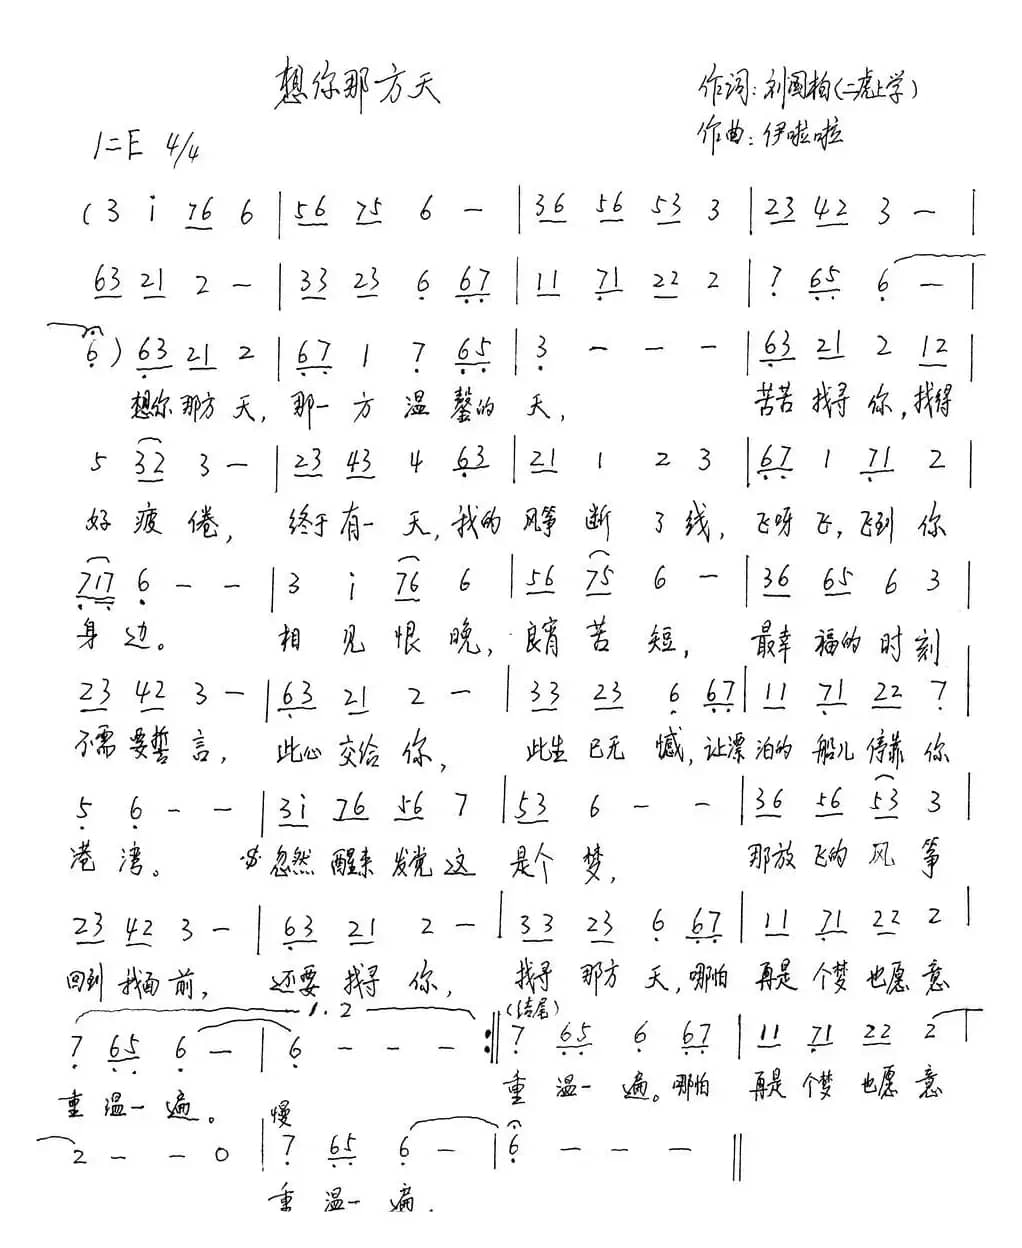 想你那方天
作词:刘国柏(二虎上学)
作曲:伊啦啦
1=E 4/4
(3 i 76 6 | 56 75 6 - | 36 56 53 3 | 23 42 3 - |
63 21 2 - | 33 23 6 67 | 11 71 22 2 | 7 65 6 - |
6) 63 21 2 | 67 1 7 65 | 3 - - - | 63 21 2 12 |
想你那方天,那一方温馨的天,苦苦找寻你,找得
5 32 3 - | 23 43 4 63 | 21 1 2 3 | 67 1 71 2 |
好疲倦,终于有一天,我的风筝断了线,飞呀飞,飞到你
717 6 - - | 3 i 76 6 | 56 75 6 - | 36 65 6 3 |
身边。相见恨晚,良宵苦短,最幸福的时刻
23 42 3 - | 63 21 2 - | 33 23 6 67 | 11 71 22 7 |
不需要誓言,此心交给你,此生已无憾,让漂泊的船儿停靠你
5 6 - - | 3i 76 56 7 | 53 6 - - | 36 56 53 3 |
港湾。𝄋忽然醒来发觉这是个梦,那放飞的风筝
23 42 3 - | 63 21 2 - | 33 23 6 67 | 11 71 22 2 |
回到我面前,还要找寻你,找寻那方天,哪怕再是个梦也愿意
1.2 (结尾)
7 65 6 - | 6 - - - :‖ 7 65 6 67 | 11 71 22 2 |
重温一遍。重温一遍。哪怕再是个梦也愿意
慢
2 - - 0 | 7 65 6 - | 6 - - - ‖
重温一遍.